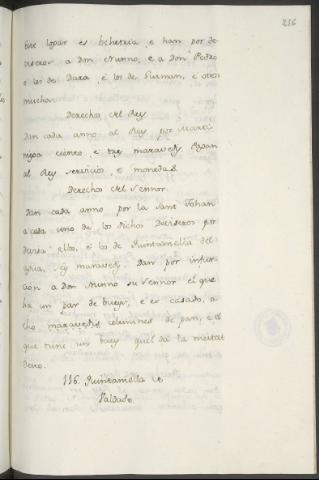 216
Este logar es behetria, e han por de
viseros a Don Nunno, e a Don Pedro
e los de Daza, e los de Guzman, e otros
muchos.
Derechos del Rey
Dan cada anno al Rey por Marti
niega ciento, e tres maravedis Pagan
al Rey servicios, e monedas.
Derechos del Sennor.
Dan cada anno por la Sant Johan
a cada uno de los dichos Deviseros por
devisa ellos, e los de Quintaniella del
agua, seis maravedis. Dan por infur
ción a Don Nunno su Sennor el que
ha un par de bueys, e es casado, o
cho maravedis celemines de pan, e el
que tiene un buey quel da la meitat
desto.
116. Quintaniella de
Saldado.